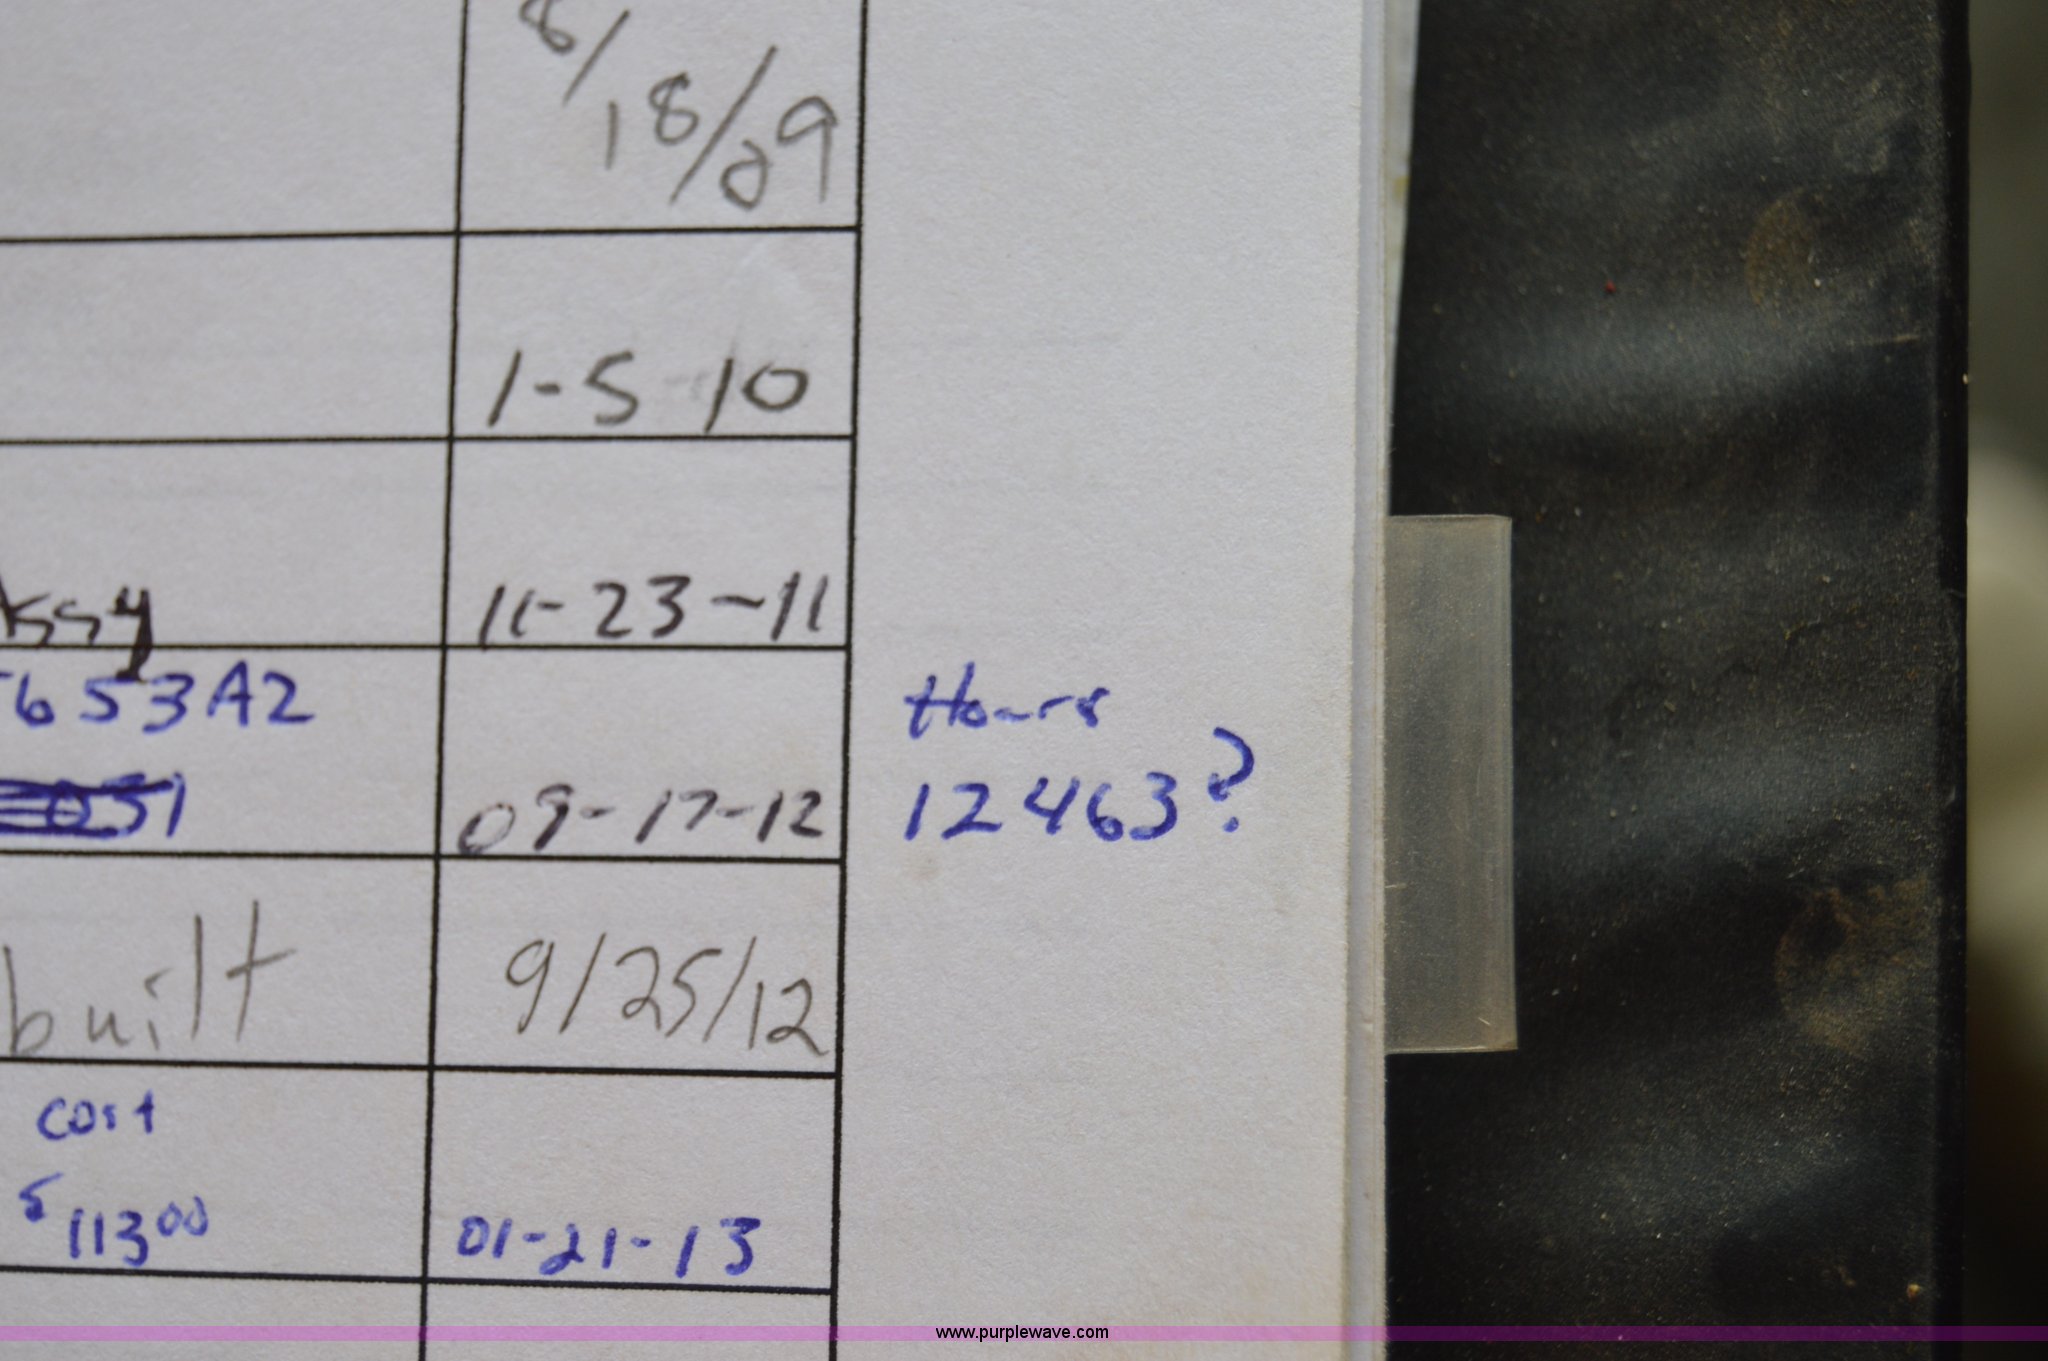 8/18/09
1-5-10
Assy 11-23-11
653A2
Hours
09-17-12 12463?
built 9/25/12
cost
$11300 01-21-13
www.purplewave.com